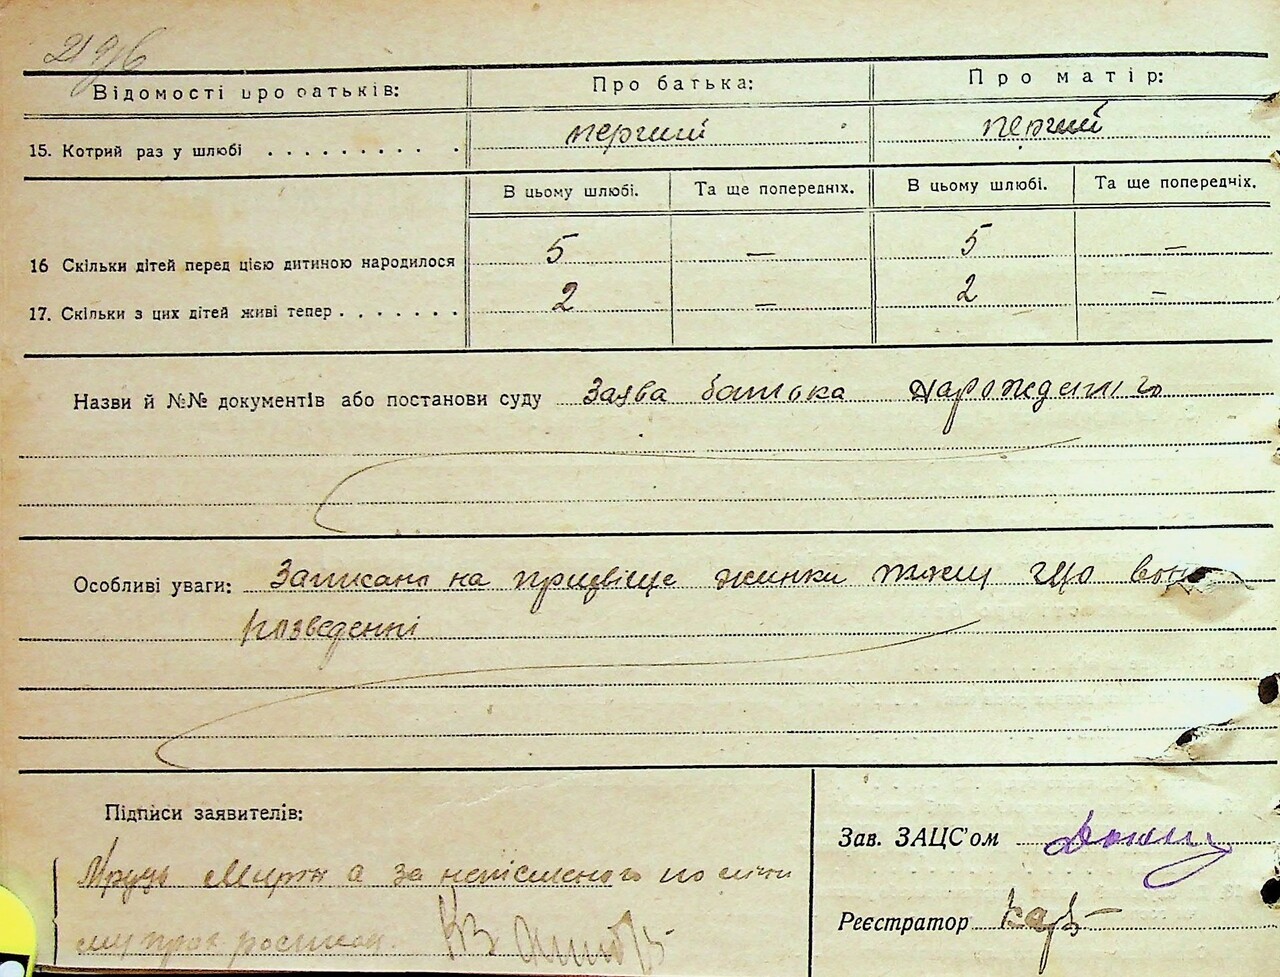 2196
Відомості про батьків: Про батька: Про матір:
15. Котрий раз у шлюбі . . . . . . . . . . перший перший
В цьому шлюбі. Та ще попередніх. В цьому шлюбі. Та ще попередніх.
16 Скільки дітей перед цією дитиною народилося 5 — 5 —
17. Скільки з цих дітей живі тепер . . . . . . . 2 — 2 —
Назви й №№ документів або постанови суду Заява батька нарожденого
Особливі уваги: Записано на прізвіще жинки тому що вони
розведенні
Підписи заявителів:
Зав. ЗАЦС'ом
а за неписьменого по
Реєстратор